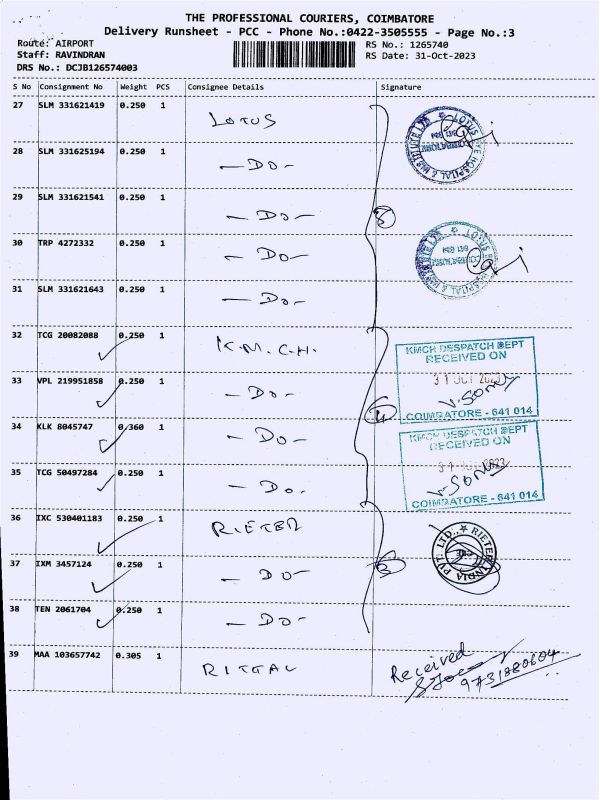 THE PROFESSIONAL COURIERS, COIMBATORE
Delivery Runsheet - PCC - Phone No.:0422-3505555 - Page No.:3
Route: AIRPORT RS No.: 1265740
Staff: RAVINDRAN RS Date: 31-Oct-2023
DRS No.: DCJB126574003
S No Consignment No Weight PCS Consignee Details Signature
27 SLM 331621419 0.250 1 LOTUS
28 SLM 331625194 0.250 1 - DO -
29 SLM 331621541 0.250 1 - DO -
30 TRP 4272332 0.250 1 - DO -
31 SLM 331621643 0.250 1 - DO -
32 TCG 20082088 0.250 1 K.M.C.H.
KMCH DESPATCH DEPT
RECEIVED ON
31 OCT 2023
COIMBATORE - 641 014
33 VPL 219951858 0.250 1 - DO -
34 KLK 8045747 0.360 1 - DO -
KMCH DESPATCH DEPT
RECEIVED ON
COIMBATORE - 641 014
35 TCG 50497284 0.250 1 - DO.
36 IXC 530401183 0.250 1 RIETER
RIETER INDIA PVT. LTD.,
37 IXM 3457124 0.250 1 - DO -
38 TEN 2061704 0.250 1 - DO -
39 MAA 103657742 0.305 1 RITTAL
Received
9731880604